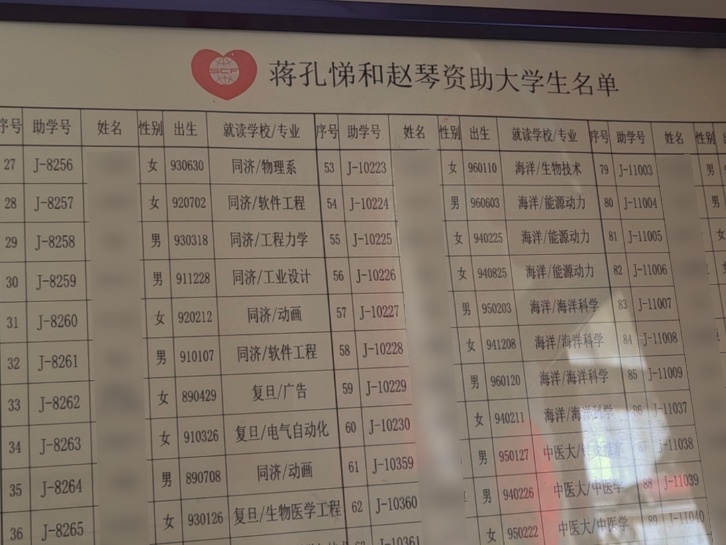 SCF
蒋孔悌和赵琴资助大学生名单
序号 助学号 姓名 性别 出生 就读学校/专业 序号 助学号 姓名 性别 出生 就读学校/专业 序号 助学号 姓名
27 J-8256 女 930630 同济/物理系 53 J-10223 女 960110 海洋/生物技术 79 J-11003 男
28 J-8257 女 920702 同济/软件工程 54 J-10224 男 960603 海洋/能源动力 80 J-11004
29 J-8258 男 930318 同济/工程力学 55 J-10225 女 940225 海洋/能源动力 81 J-11005
30 J-8259 男 911228 同济/工业设计 56 J-10226 女 940825 海洋/能源动力 82 J-11006
31 J-8260 女 920212 同济/动画 57 J-10227 男 950203 海洋/海洋科学 83 J-11007
32 J-8261 男 910107 同济/软件工程 58 J-10228 女 941208 海洋/海洋科学 84 J-11008
33 J-8262 女 890429 复旦/广告 59 J-10229 男 960120 海洋/海洋科学 85 J-11009
34 J-8263 女 910326 复旦/电气自动化 60 J-10230 女 940211 海洋/海洋科学 86 J-11037
35 J-8264 男 890708 同济/动画 61 J-10359 男 950127 中医大/ J-11038
36 J-8265 女 930126 复旦/生物医学工程 62 J-10360 男 940226 中医大/中医学 88 J-11039
J-10361 女 950222 中医大/中医学 89 J-11040